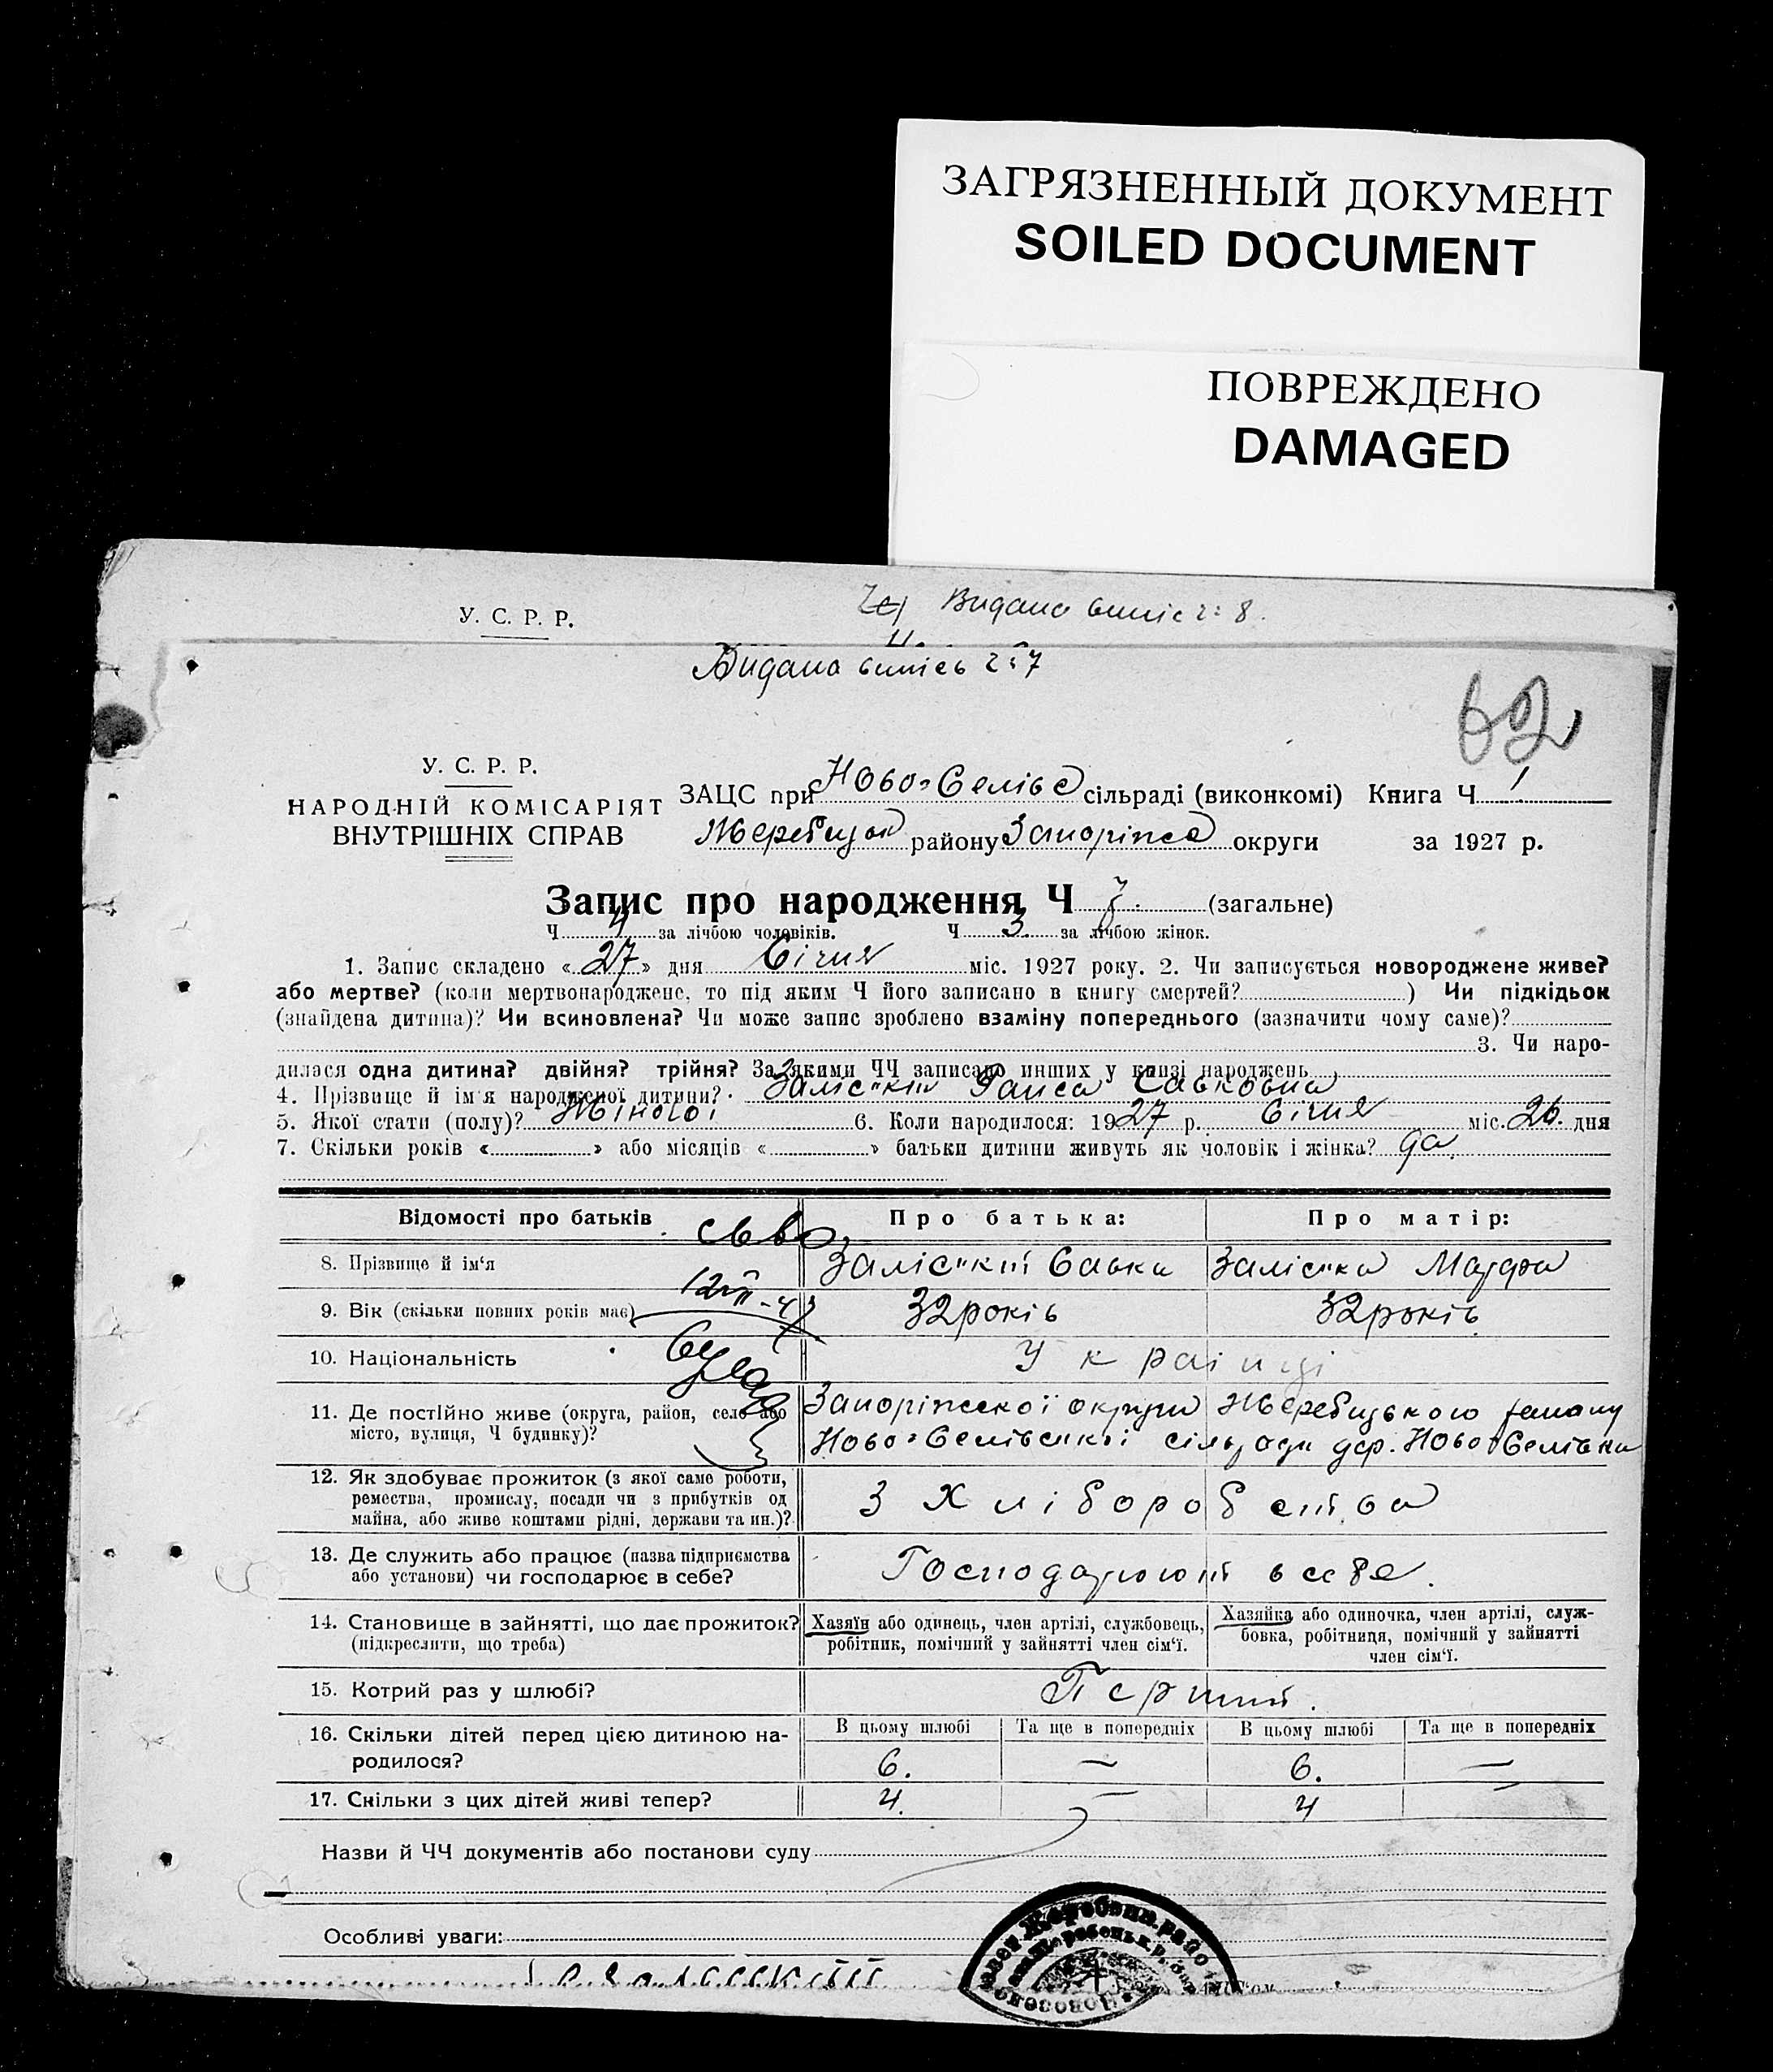 ЗАГРЯЗНЕННЫЙ ДОКУМЕНТ
SOILED DOCUMENT
ПОВРЕЖДЕНО
DAMAGED
У. С. Р. Р.
Видано випис ч: 8.
Видано випись ч: 7
62
У. С. Р. Р.
НАРОДНІЙ КОМІСАРІЯТ
ВНУТРІШНІХ СПРАВ
ЗАЦС при Ново-Селівс сільраді (виконкомі) Книга Ч 1
Жеребцьк району Запоріжс округи за 1927 р.
Запис про народження Ч 7. (загальне)
Ч 4 за лічбою чоловіків. Ч 3. за лічбою жінок.
1. Запис складено «27» дня Січня міс. 1927 року. 2. Чи записується новороджене живе?
або мертве? (коли мертвонароджене, то під яким Ч його записано в книгу смертей? ) Чи підкідьок
(знайдена дитина)? Чи всиновлена? Чи може запис зроблено взаміну попереднього (зазначити чому саме)?
3. Чи наро-
дилася одна дитина? двійня? трійня? За якими ЧЧ записано инших у книзі народжень
4. Прізвище й ім'я народженої дитини? Раиса Савковна
5. Якої стати (полу)? Жіночої 6. Коли народилося: 1927 р. Січня міс. 26. дня
7. Скільки років « » або місяців « » батьки дитини живуть як чоловік і жінка? да.
Відомості про батьків Про батька: Про матір:
8. Прізвище й ім'я Заліський Савка Заліська Марфа
9. Вік (скільки повних років має) 32 років 32 років
10. Національність Українці
11. Де постійно живе (округа, район, село або
місто, вулиця, Ч будинку)?
Запоріжської округи Жеребцького району
Ново-Селівської сільради дер. Ново Селівка
12. Як здобуває прожиток (з якої саме роботи,
ремества, промислу, посади чи з прибутків од
майна, або живе коштами рідні, держави та ин.)?
З Хліборобства
13. Де служить або працює (назва підприємства
або установи) чи господарює в себе?
Господарюють в себе.
14. Становище в зайнятті, що дає прожиток?
(підкреслити, що треба)
Хазяїн або одинець, член артілі, службовець,
робітник, помічний у зайнятті член сім'ї.
Хазяйка або одиночка, член артілі, служ-
бовка, робітниця, помічний у зайнятті
член сім'ї.
15. Котрий раз у шлюбі? Перший.
16. Скільки дітей перед цією дитиною на-
родилося?
В цьому шлюбі Та ще в попередніх В цьому шлюбі Та ще в попередніх
6. — 6. —
17. Скільки з цих дітей живі тепер? 4. — 4 —
Назви й ЧЧ документів або постанови суду
Особливі уваги: